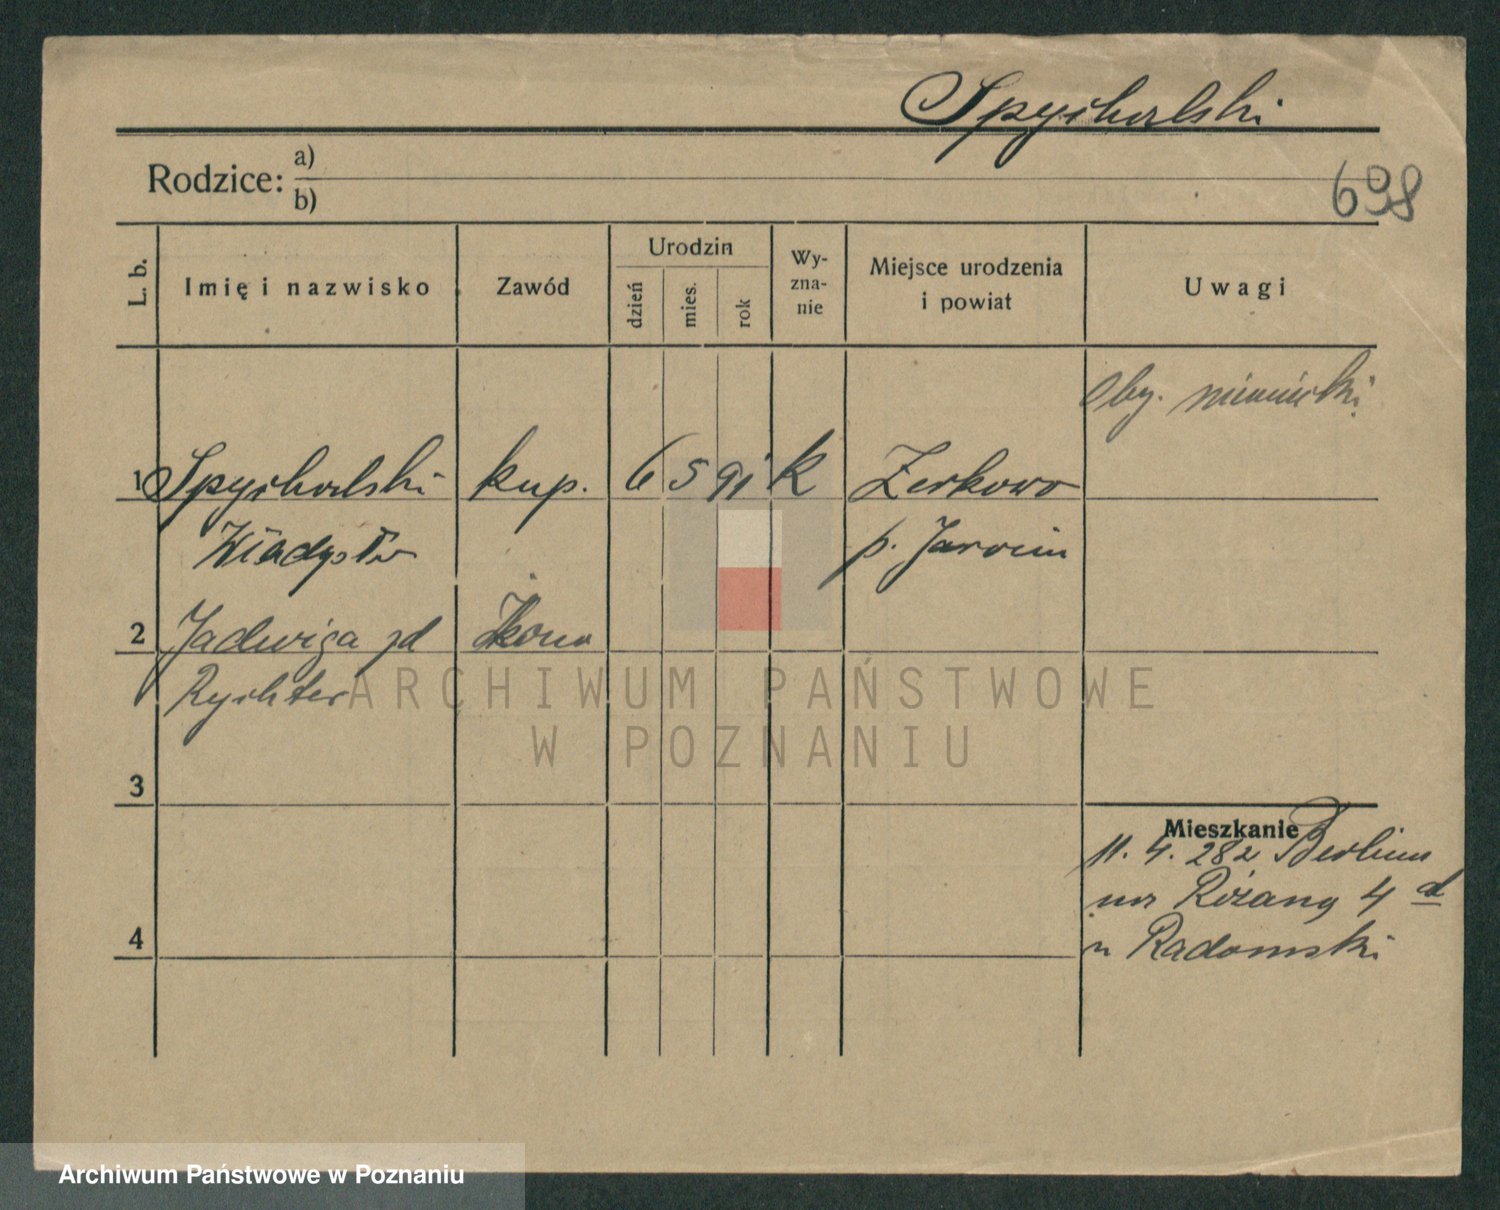 Spychalski
Rodzice: a)
b)
698
L. b.
Imię i nazwisko
Zawód
Urodzin
dzień
mies.
rok
Wy-
zna-
nie
Miejsce urodzenia
i powiat
Uwagi
Oby. niemiecki
1 Spychalski kup. 6 5 91 k Zerkowo
Władysław p. Jarocin
2 Jadwiga zd żona
Rychter
ARCHIWUM PAŃSTWOWE
W POZNANIU
3
Mieszkanie
11. 4. 282 Berlina
na Różaną 4 d
u Radomski
4
Archiwum Państwowe w Poznaniu